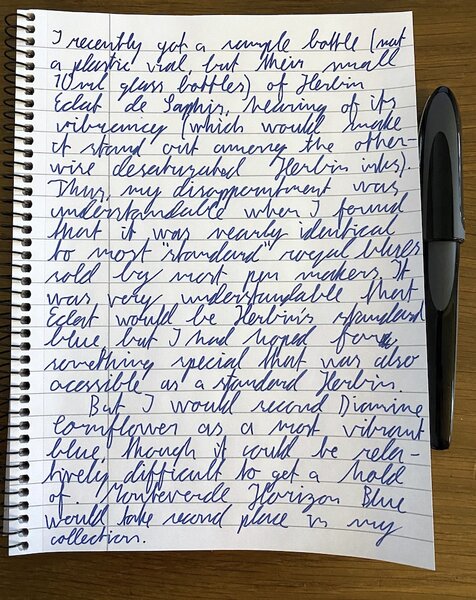 I recently got a sample bottle (not
a plastic vial but their small
10ml glass bottles) of Herbin
Eclat de Saphir, hearing of its
vibrancy (which would make
it stand out among the other-
wise desaturated Herbin inks).
Thus, my disappointment was
understandable when I found
that it was nearly identical
to most "standard" royal blues
sold by most pen makers. It
was very understandable that
Eclat would be Herbin's standard
blue but I had hoped for
something special that was also
acessible as a standard Herbin.
But I would second Diamine
Cornflower as a most vibrant
blue, though it could be rela-
tively difficult to get a hold
of. Monteverde Horizon Blue
would take second place in my
collection.